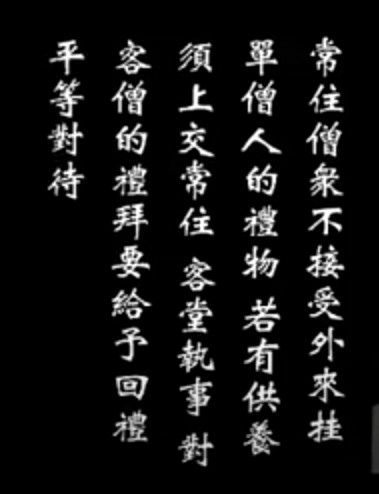 常住僧眾不接受外來挂
單僧人的禮物 若有供養
須上交常住 客堂執事 對
客僧的禮拜要給予回禮
平等對待